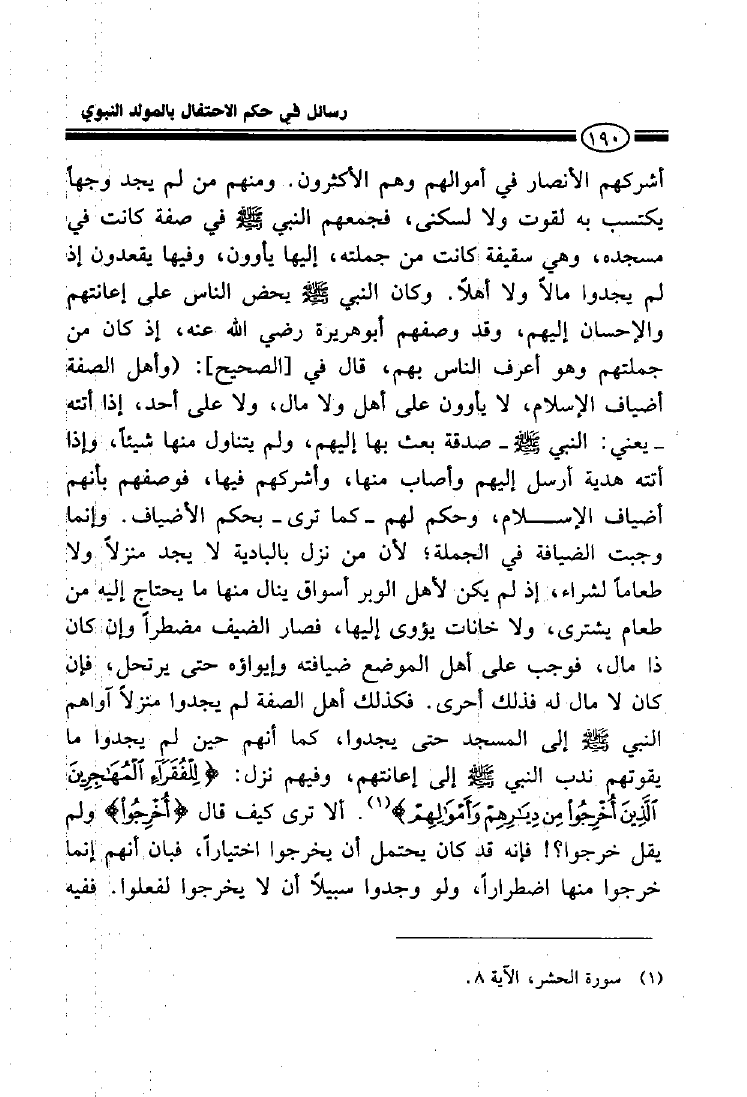 رسائل في حكم الاحتفال بالمولد النبوي
١٩٠
أشركهم الأنصار في أموالهم وهم الأكثرون. ومنهم من لم يجد وجهاً
يكتسب به لقوت ولا لسكنى، فجمعهم النبي ﷺ في صفة كانت في
مسجده، وهي سقيفة كانت من جملته، إليها يأوون، وفيها يقعدون إذ
لم يجدوا مالاً ولا أهلاً. وكان النبي ﷺ يحض الناس على إعانتهم
والإحسان إليهم، وقد وصفهم أبوهريرة رضي الله عنه، إذ كان من
جملتهم وهو أعرف الناس بهم، قال في [الصحيح]: (وأهل الصفة
أضياف الإسلام، لا يأوون على أهل ولا مال، ولا على أحد، إذا أتته
ـ يعني: النبي ﷺ ـ صدقة بعث بها إليهم، ولم يتناول منها شيئاً، وإذا
أتته هدية أرسل إليهم وأصاب منها، وأشركهم فيها، فوصفهم بأنهم
أضياف الإســـلام، وحكم لهم ـ كما ترى ـ بحكم الأضياف. وإنما
وجبت الضيافة في الجملة؛ لأن من نزل بالبادية لا يجد منزلاً ولا
طعاماً لشراء، إذ لم يكن لأهل الوبر أسواق ينال منها ما يحتاج إليه من
طعام يشترى، ولا خانات يؤوى إليها، فصار الضيف مضطراً وإن كان
ذا مال، فوجب على أهل الموضع ضيافته وإيواؤه حتى يرتحل، فإن
كان لا مال له فذلك أحرى. فكذلك أهل الصفة لم يجدوا منزلاً آواهم
النبي ﷺ إلى المسجد حتى يجدوا، كما أنهم حين لم يجدوا ما
يقوتهم ندب النبي ﷺ إلى إعانتهم، وفيهم نزل: ﴿لِلْفُقَرَآءِ ٱلْمُهَٰجِرِينَ
ٱلَّذِينَ أُخْرِجُوا۟ مِن دِيَٰرِهِمْ وَأَمْوَٰلِهِمْ﴾(١). ألا ترى كيف قال ﴿أُخْرِجُوا۟﴾ ولم
يقل خرجوا؟! فإنه قد كان يحتمل أن يخرجوا اختياراً، فبان أنهم إنما
خرجوا منها اضطراراً، ولو وجدوا سبيلاً أن لا يخرجوا لفعلوا. ففيه
(١) سورة الحشر، الآية ٨.